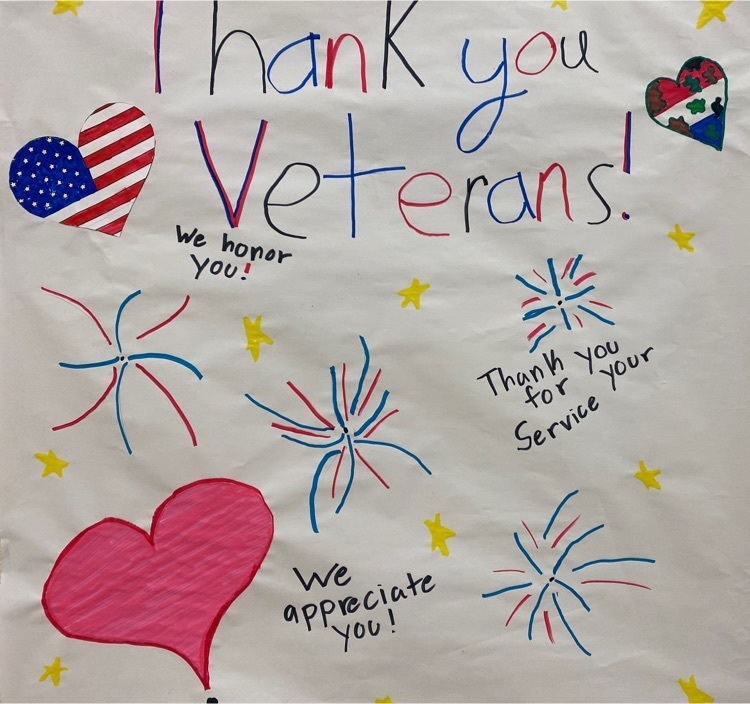 Thank you
Veterans!
We honor
you!
Thank you
for your
Service
We
appreciate
you!